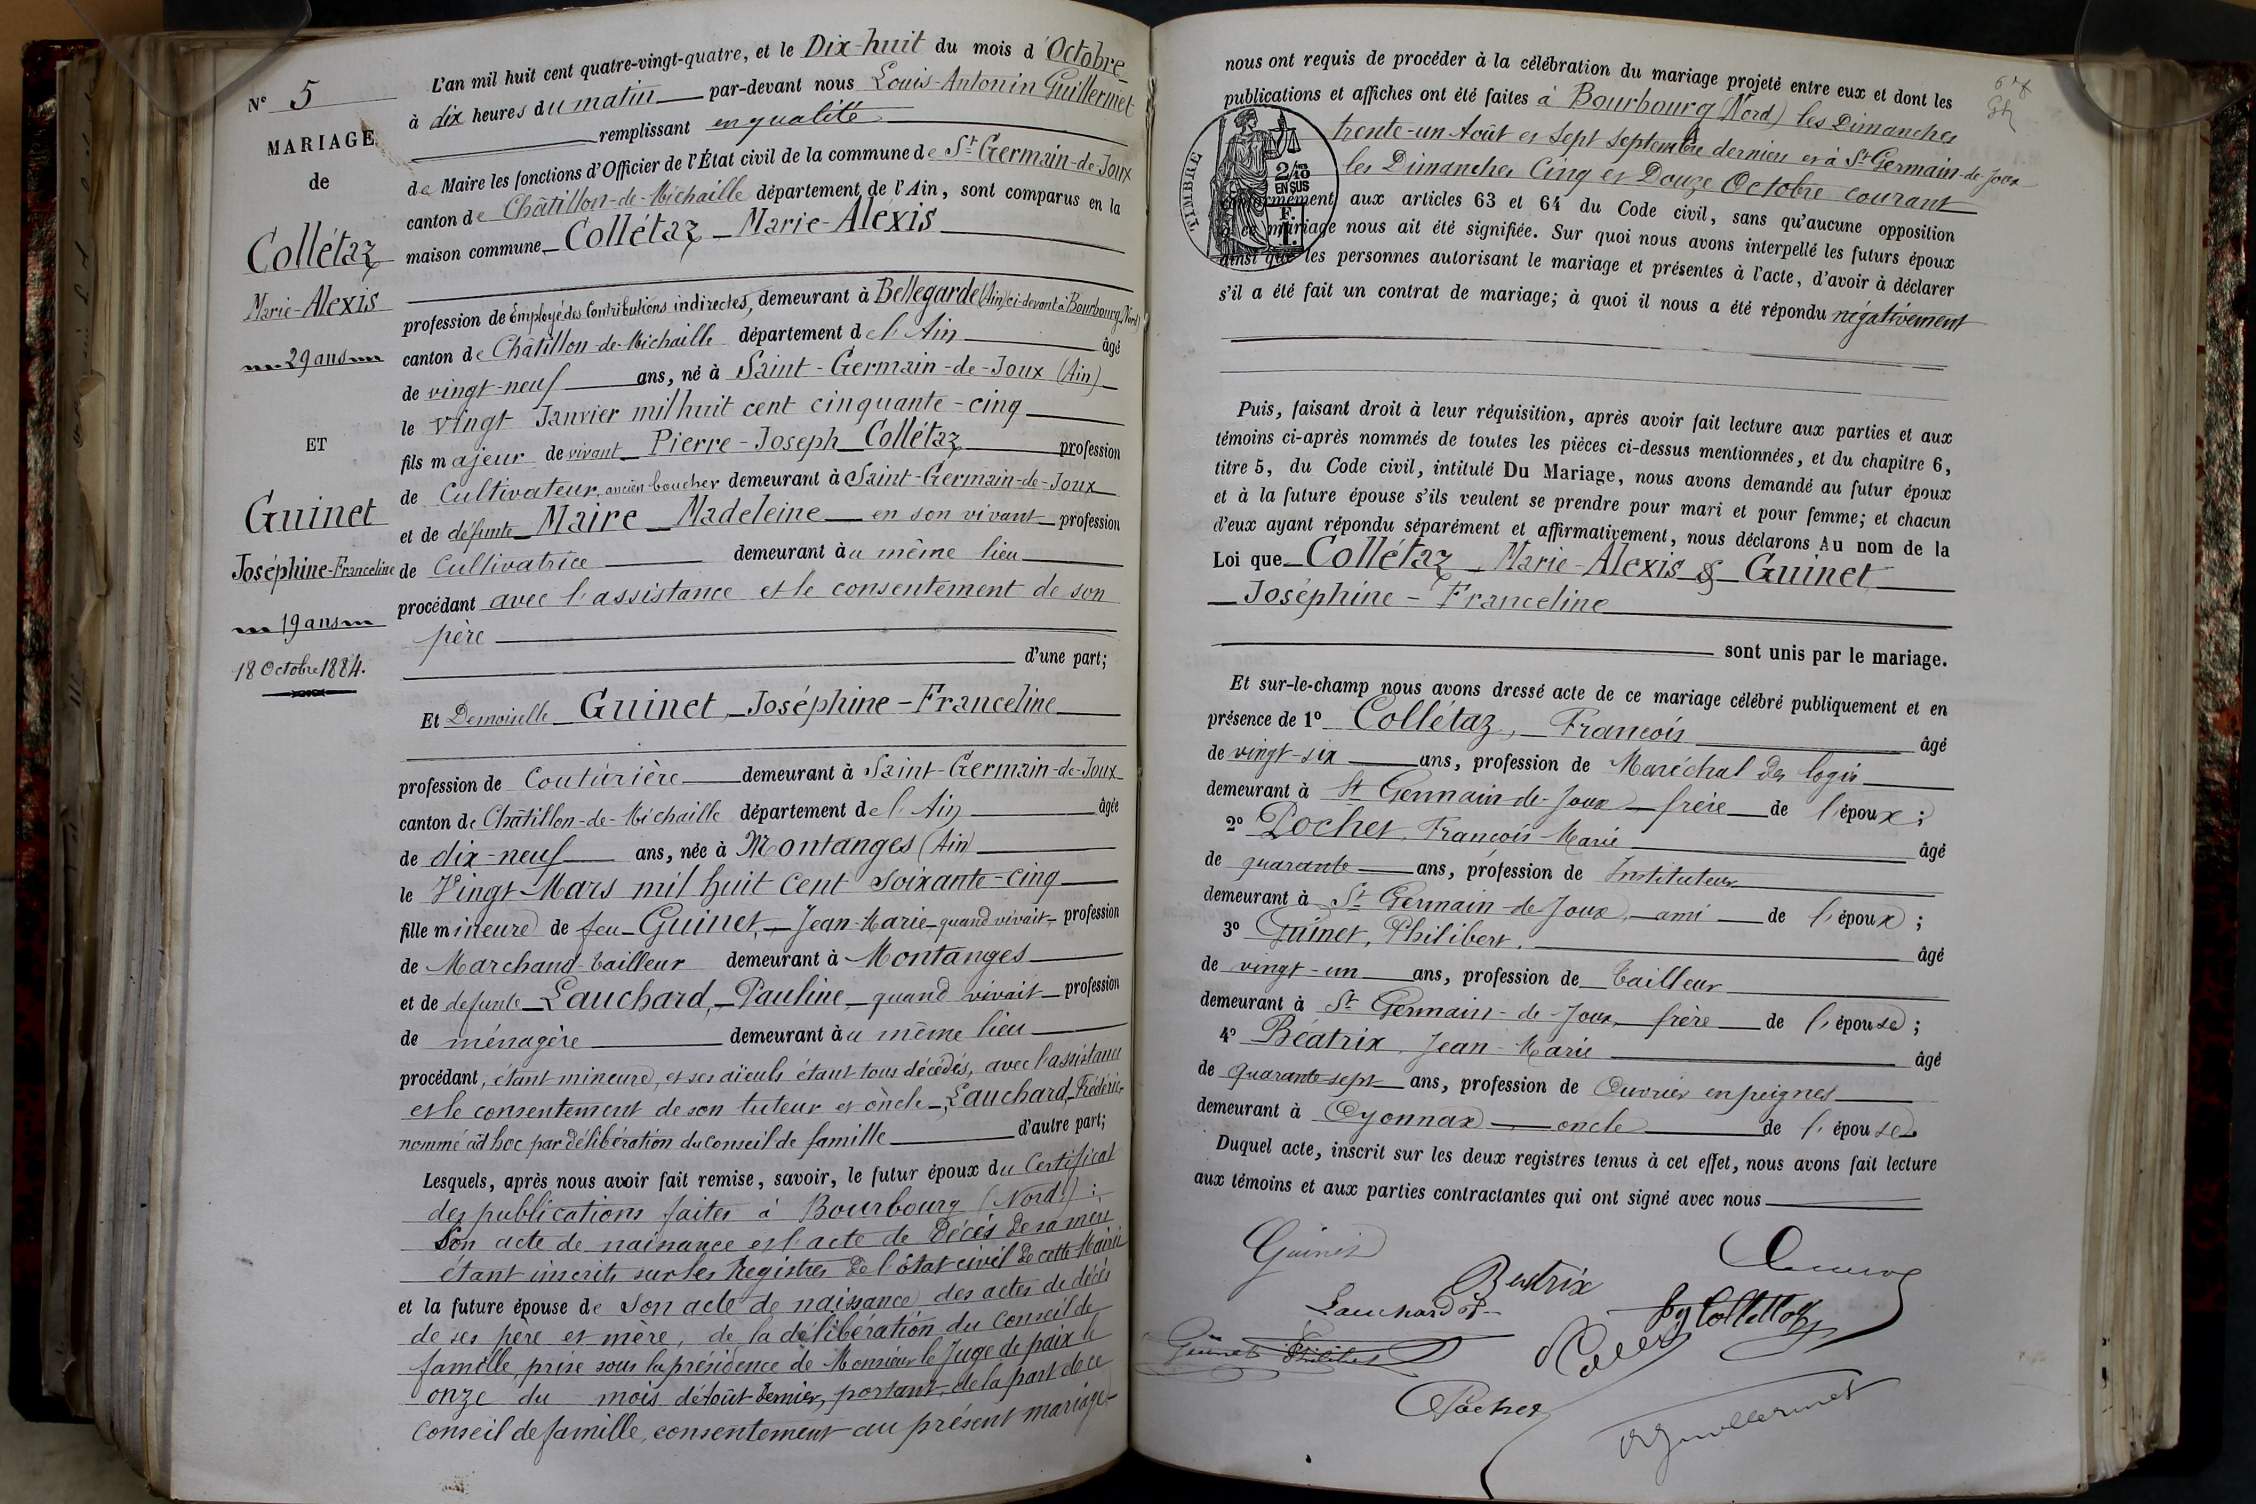 N° 5
MARIAGE
de
Collétaz
Marie-Alexis
29 ans
ET
Guinet
Joséphine-Franceline
19 ans
18 Octobre 1884.
L'an mil huit cent quatre-vingt-quatre, et le Dix-huit du mois d'Octobre
à dix heures du matin par-devant nous Louis-Antonin Guillermet
remplissant en qualité
de Maire les fonctions d'Officier de l'État civil de la commune de St Germain-de-Joux
canton de Châtillon-de-Michaille département de l'Ain, sont comparus en la
maison commune Collétaz Marie-Alexis
profession de Employé des Contributions indirectes, demeurant à Bellegarde (Ain) ci-devant à Bourbourg (Nord)
canton de Châtillon-de-Michaille département de l'Ain âgé
de vingt-neuf ans, né à Saint-Germain-de-Joux (Ain)
le vingt Janvier mil huit cent cinquante-cinq
fils majeur de vivant Pierre-Joseph Collétaz profession
de Cultivateur, ancien boucher demeurant à Saint-Germain-de-Joux
et de défunte Maire Madeleine en son vivant profession
de Cultivatrice demeurant au même lieu
procédant avec l'assistance et le consentement de son
père
d'une part;
Et Demoiselle Guinet, Joséphine-Franceline
profession de Couturière demeurant à Saint-Germain-de-Joux
canton de Châtillon-de-Michaille département de l'Ain âgée
de dix-neuf ans, née à Montanges (Ain)
le Vingt Mars mil huit cent soixante-cinq
fille mineure de feu Guinet, Jean-Marie quand vivait profession
de Marchand-tailleur demeurant à Montanges
et de defunte Lauchard, Pauline quand vivait profession
de ménagère demeurant au même lieu
procédant, étant mineure, et ses aïeuls étant tous décédés, avec l'assistance
et le consentement de son tuteur et oncle, Lauchard, Frédéric
nommé ad hoc par délibération du conseil de famille d'autre part;
Lesquels, après nous avoir fait remise, savoir, le futur époux du Certificat
des publications faites à Bourbourg (Nord);
Son acte de naissance et l'acte de Décès de sa mère
étant inscrits sur les Registres de l'état civil de cette Mairie
et la future épouse de son acte de naissance, des actes de décès
de ses père et mère, de la délibération du Conseil de
famille, prise sous la présidence de Monsieur le Juge de paix le
onze du mois d'Août dernier, portant, de la part de ce
conseil de famille, consentement au présent mariage
nous ont requis de procéder à la célébration du mariage projeté entre eux et dont les
publications et affiches ont été faites à Bourbourg (Nord) les Dimanches
trente-un Août et sept septembre derniers et à St Germain-de-Joux
les Dimanches Cinq et Douze Octobre courant
TIMBRE
2/10
EN SUS
F.
I.
conformément aux articles 63 et 64 du Code civil, sans qu'aucune opposition
à ce mariage nous ait été signifiée. Sur quoi nous avons interpellé les futurs époux
ainsi que les personnes autorisant le mariage et présentes à l'acte, d'avoir à déclarer
s'il a été fait un contrat de mariage; à quoi il nous a été répondu négativement
Puis, faisant droit à leur réquisition, après avoir fait lecture aux parties et aux
témoins ci-après nommés de toutes les pièces ci-dessus mentionnées, et du chapitre 6,
titre 5, du Code civil, intitulé Du Mariage, nous avons demandé au futur époux
et à la future épouse s'ils veulent se prendre pour mari et pour femme; et chacun
d'eux ayant répondu séparément et affirmativement, nous déclarons Au nom de la
Loi que Collétaz, Marie-Alexis & Guinet
Joséphine-Franceline
sont unis par le mariage.
Et sur-le-champ nous avons dressé acte de ce mariage célébré publiquement et en
présence de 1° Collétaz, François âgé
de vingt-six ans, profession de Maréchal des logis
demeurant à St Germain-de-Joux frère de l'époux;
2° Pochet, François-Marie âgé
de quarante ans, profession de Instituteur
demeurant à St Germain-de-Joux, ami de l'époux;
3° Guinet, Philibert, âgé
de vingt-un ans, profession de tailleur
demeurant à St Germain-de-Joux, frère de l'épouse;
4° Béatrix, Jean-Marie âgé
de quarante-sept ans, profession de Ouvrier en peignes
demeurant à Oyonnax oncle de l'épouse
Duquel acte, inscrit sur les deux registres tenus à cet effet, nous avons fait lecture
aux témoins et aux parties contractantes qui ont signé avec nous
Guinet
Beatrix
Lauchard
Collettaz
Guinet Philibert
Pochet
Guillermet